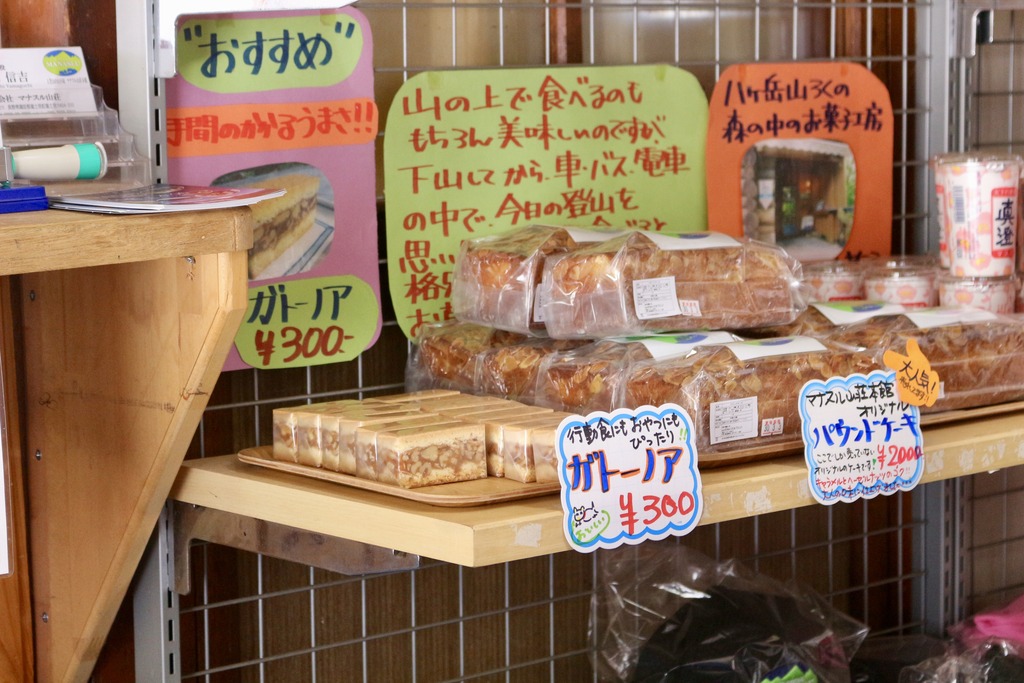 信吉
マナスル山荘
"おすすめ"
手間のかかるうまさ!!
ガトーノア
¥300-
山の上で食べるのも
もちろん美味しいのですが
下山してから、車・バス、電車
の中で、今日の登山を
思い
八ヶ岳山ろくの
森の中のお菓子工房
真澄
行動食にもおやつにも
ぴったり!!
ガトーノア
¥300
おいしい
大人気!
マナスル山荘本館
オリジナル
パウンドケーキ
¥2000
ここでしか売っていない
オリジナルのケーキです!